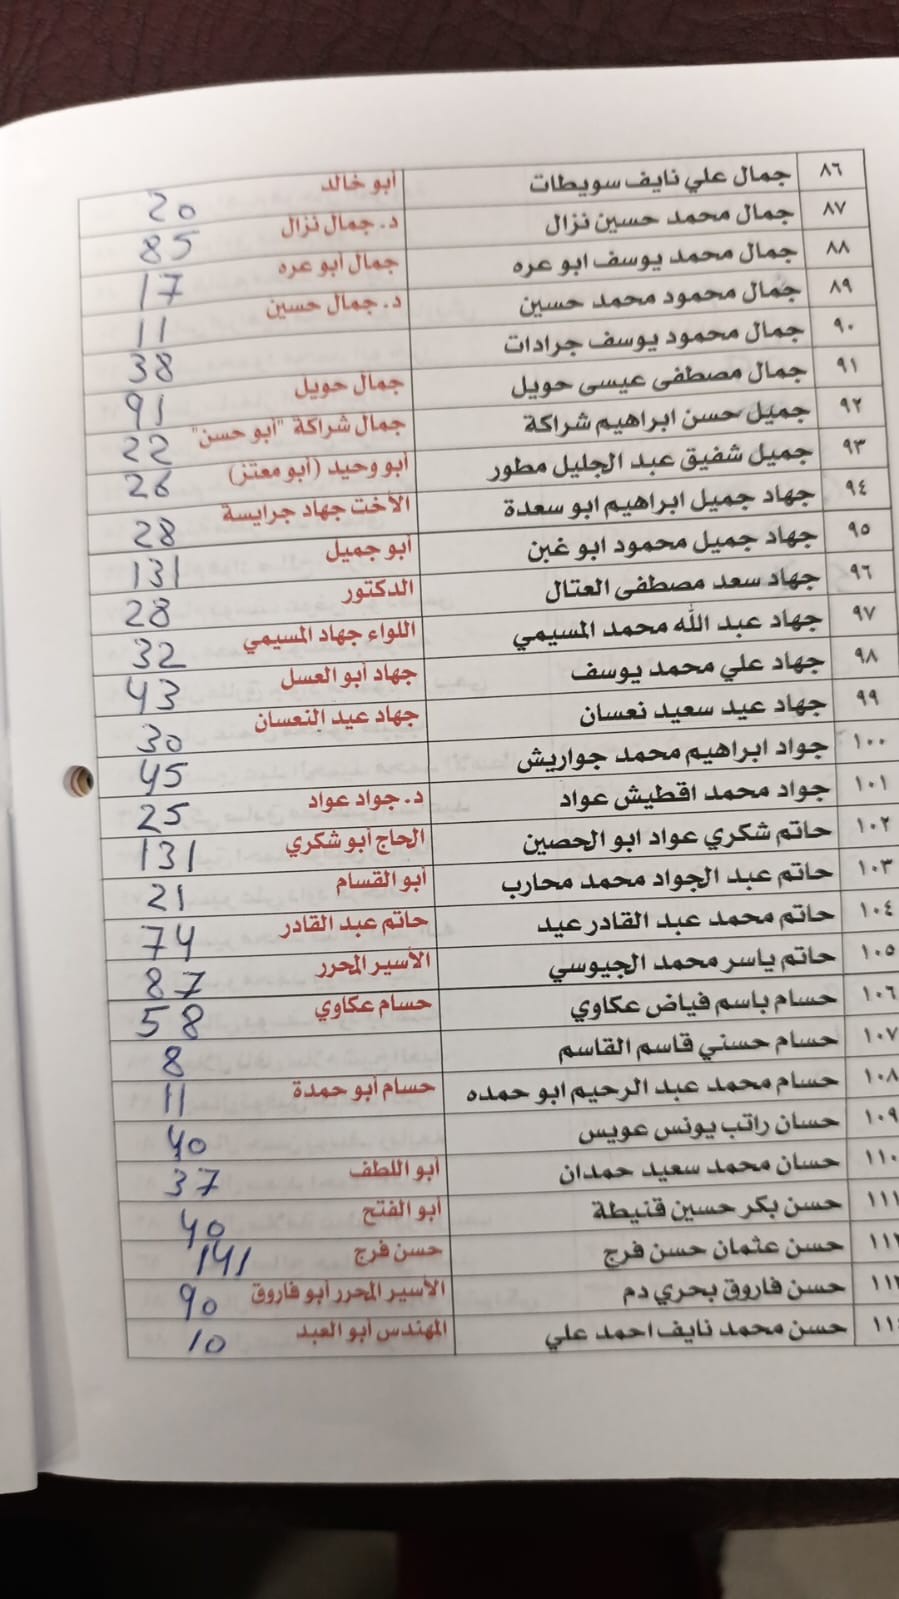 ٨٦ جمال علي نايف سويطات أبو خالد 20
٨٧ جمال محمد حسين نزال د. جمال نزال 85
٨٨ جمال محمد يوسف ابو عره جمال أبو عره 17
٨٩ جمال محمود محمد حسين د. جمال حسين 11
٩٠ جمال محمود يوسف جرادات 38
٩١ جمال مصطفى عيسى حويل جمال حويل 91
٩٢ جميل حسن ابراهيم شراكة جمال شراكة "أبو حسن" 22
٩٣ جميل شفيق عبد الجليل مطور أبو وحيد (أبو معتز) 26
٩٤ جهاد جميل ابراهيم ابو سعدة الأخت جهاد جرايسة 28
٩٥ جهاد جميل محمود ابو غبن أبو جميل 131
٩٦ جهاد سعد مصطفى العتال الدكتور 28
٩٧ جهاد عبد الله محمد المسيمي اللواء جهاد المسيمي 32
٩٨ جهاد علي محمد يوسف جهاد أبو العسل 43
٩٩ جهاد عيد سعيد نعسان جهاد عيد النعسان 30
١٠٠ جواد ابراهيم محمد جواريش 45
١٠١ جواد محمد اقطيش عواد د. جواد عواد 25
١٠٢ حاتم شكري عواد ابو الحصين الحاج أبو شكري 131
١٠٣ حاتم عبد الجواد محمد محارب أبو القسام 21
١٠٤ حاتم محمد عبد القادر عيد حاتم عبد القادر 74
١٠٥ حاتم ياسر محمد الجيوسي الأسير المحرر 87
١٠٦ حسام باسم فياض عكاوي حسام عكاوي 58
١٠٧ حسام حسني قاسم القاسم 8
١٠٨ حسام محمد عبد الرحيم ابو حمده حسام أبو حمدة 11
١٠٩ حسان راتب يونس عويس 40
١١٠ حسان محمد سعيد حمدان أبو اللطف 37
١١١ حسن بكر حسين قنيطة أبو الفتح 40
حسن عثمان حسن فرج حسن فرج 141
حسن فاروق بحري دم الأسير المحرر أبو فاروق 90
حسن محمد نايف احمد علي المهندس أبو العبد 10